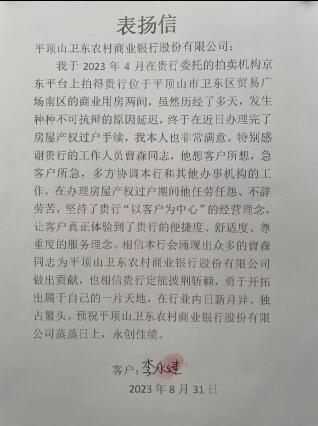 表扬信
平顶山卫东农村商业银行股份有限公司：
我于 2023 年 4 月在贵行委托的拍卖机构京
东平台上拍得贵行位于平顶山市卫东区贸易广
场南区的商业用房两间，虽然历经了多天，发生
种种不可抗辩的原因延迟，终于在近日办理完了
房屋产权过户手续，我本人也非常满意。特别感
谢贵行的工作人员曹森同志，他想客户所想，急
客户所急，多方协调本行和其他办事机构的工
作，在办理房屋产权过户期间他任劳任怨、不辞
劳苦，坚持了贵行“以客户为中心”的经营理念，
让客户真正体验到了贵行的便捷度、舒适度、尊
重度的服务理念。相信本行会涌现出众多的曹森
同志为平顶山卫东农村商业银行股份有限公司
做出贡献，也相信贵行定能披荆斩棘，勇于开拓
出属于自己的一片天地，在行业内日新月异、独
占鳌头。预祝平顶山卫东农村商业银行股份有限
公司蒸蒸日上，永创佳绩。
客户：李永建
2023 年 8 月 31 日